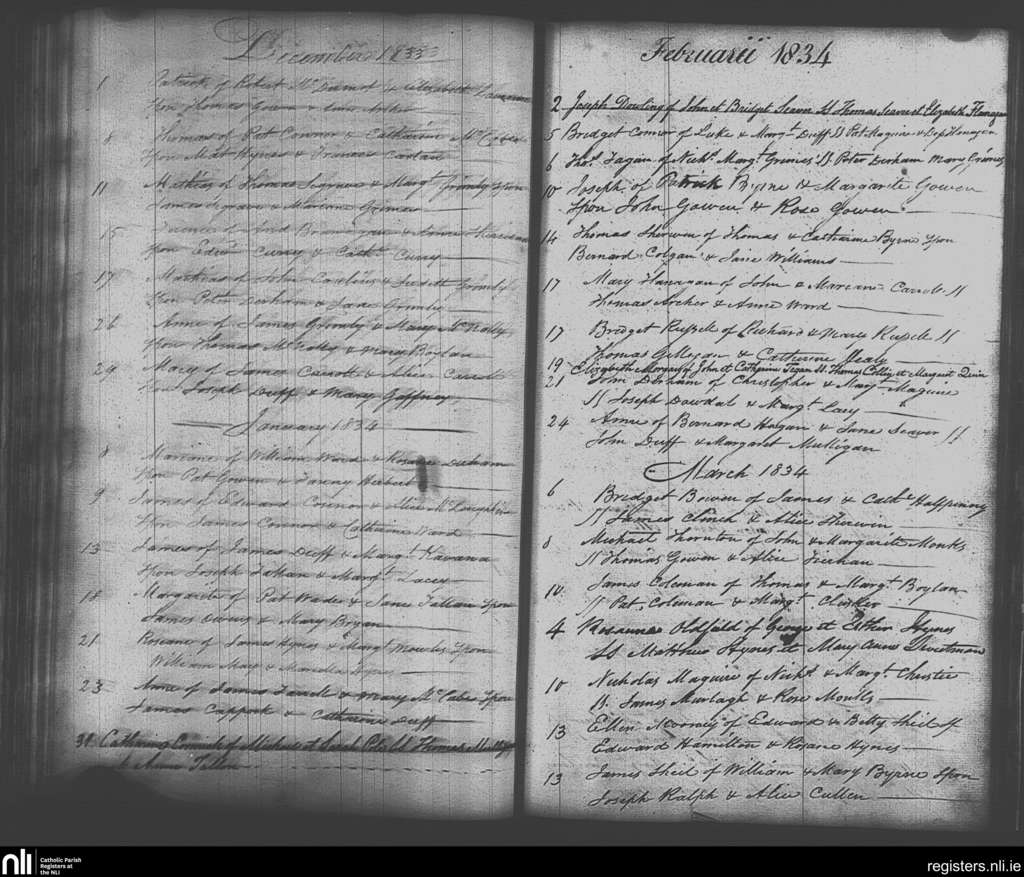 December 1833
1 Patrick of Robert McDermot & Elizabeth
Spon Thomas Gowen &
8 Thomas of Pat Connor & Catherine
Spon Matt Hynes & Frances Carolan
11 Mathias of Thomas & Margt Grimly Spon
James &
15 of Brannigan & Anne
Spon Edwd Curry & Cathe Curry
17 Mathias of John & Grimly
Spon Peter Derham & Jane Grimly
26 Anne of James Grimly & Mary McNally
Spon Thomas McNally & Mary Boylan
29 Mary of James Carroll & Alice Carroll
Spon Joseph Duff & Mary Gaffney
January 1834
8 Mariane of William Ward & Rosane Derham
Spon Pat Gowen & Fanny Herbert
9 James of Edward Connor & Alice McLoughlin
Spon James Connor & Catherine Ward
13 James of James Duff & Margt Havana
Spon Joseph Tallan & Margt Lacey
18 Margarite of Pat Wade & Jane Tallan Spon
James Owens & Mary Bryan
21 Rosane of James Hynes & Margt Monks Spon
William May &
23 Anne of James & Mary McCabe Spon
James Cappock & Catherine Duff
31 Catharine of Michael et Sarah Thomas
& Anne Tallon
Februarii 1834
2 Joseph Dowling of John et Bridget Seaver SS Thomas Seaver et Elizabeth Flanagan
5 Bridget Connor of Luke & Margt Duff SS Pat Maguire & Flanagan
6 Thos Fagan of Nichs Margt Grimes SS Peter Derham Mary Grimes
10 Joseph of Patrick Byrne & Margarite Gowen
Spon John Gowen & Rose Gowen
14 Thomas Sherwin of Thomas & Catharine Byrne Spon
Bernard Colgan & Jane Williams
17 Mary Hanavan of John & Mareane Carroll SS
Thomas Archer & Anne Ward
17 Bridget Russell of Richard & Maria Russell SS
Thomas Gilligan & Catherine Healy
19 Elizabeth Morgan of John et Catharine Fegan SS Thomas Collig et Margaret Quin
21 John Derham of Christopher & Margt Maguire
SS Joseph Dowdal & Margt Lacy
24 Anne of Bernard Halgan & Jane Seaver SS
John Duff & Margaret Mulligan
March 1834
6 Bridget Bowen of James & Cathe Halfpinny
SS James Clinch & Alice Sherwin
8 Michael Thornton of John & Margarite Monks
SS Thomas Gowen & Alice Feehan
10 James Coleman of Thomas & Margt Boylan
SS Pat Coleman & Margt Clusker
4 Rosanna Oldfield of George et Esther Hynes
SS Matthew Hynes et Mary Anne Sweetman
10 Nicholas Maguire of Nichs & Margt Christie
SS James Murtagh & Rose Monks
13 Ellen Mooney of Edward & Betty Sheil Sp
Edward Hamilton & Rosane Hynes
13 James Sheil of William & Mary Byrne Spon
Joseph Ralph & Alice Cullen
nli Catholic Parish
Registers at
the NLI
registers.nli.ie